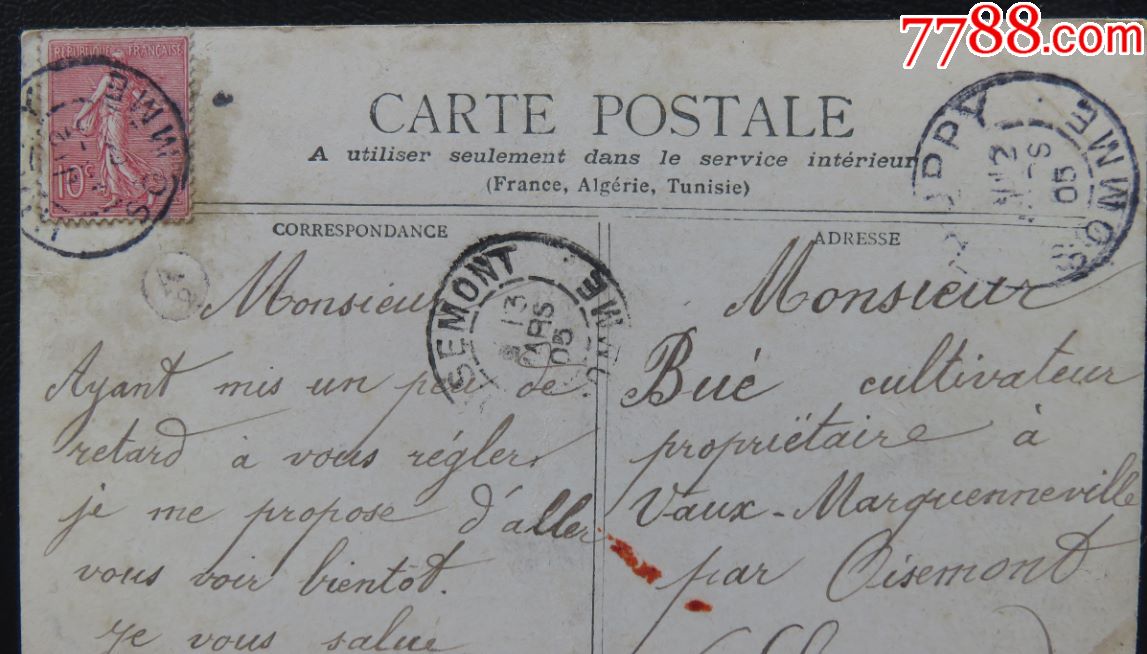 7788.com
REPUBLIQUE FRANÇAISE
10
CARTE POSTALE
A utiliser seulement dans le service intérieur
(France, Algérie, Tunisie)
CORRESPONDANCE
Monsieur
Ayant mis un peu de
retard à vous régler
je me propose d'aller
vous voir bientôt.
Je vous salue
SOMME
SEMONT
13
MARS
05
ADRESSE
Monsieur
Bué cultivateur
propriëtaire à
Vaux-Marquenneville
par Oisemont
SOMME
05